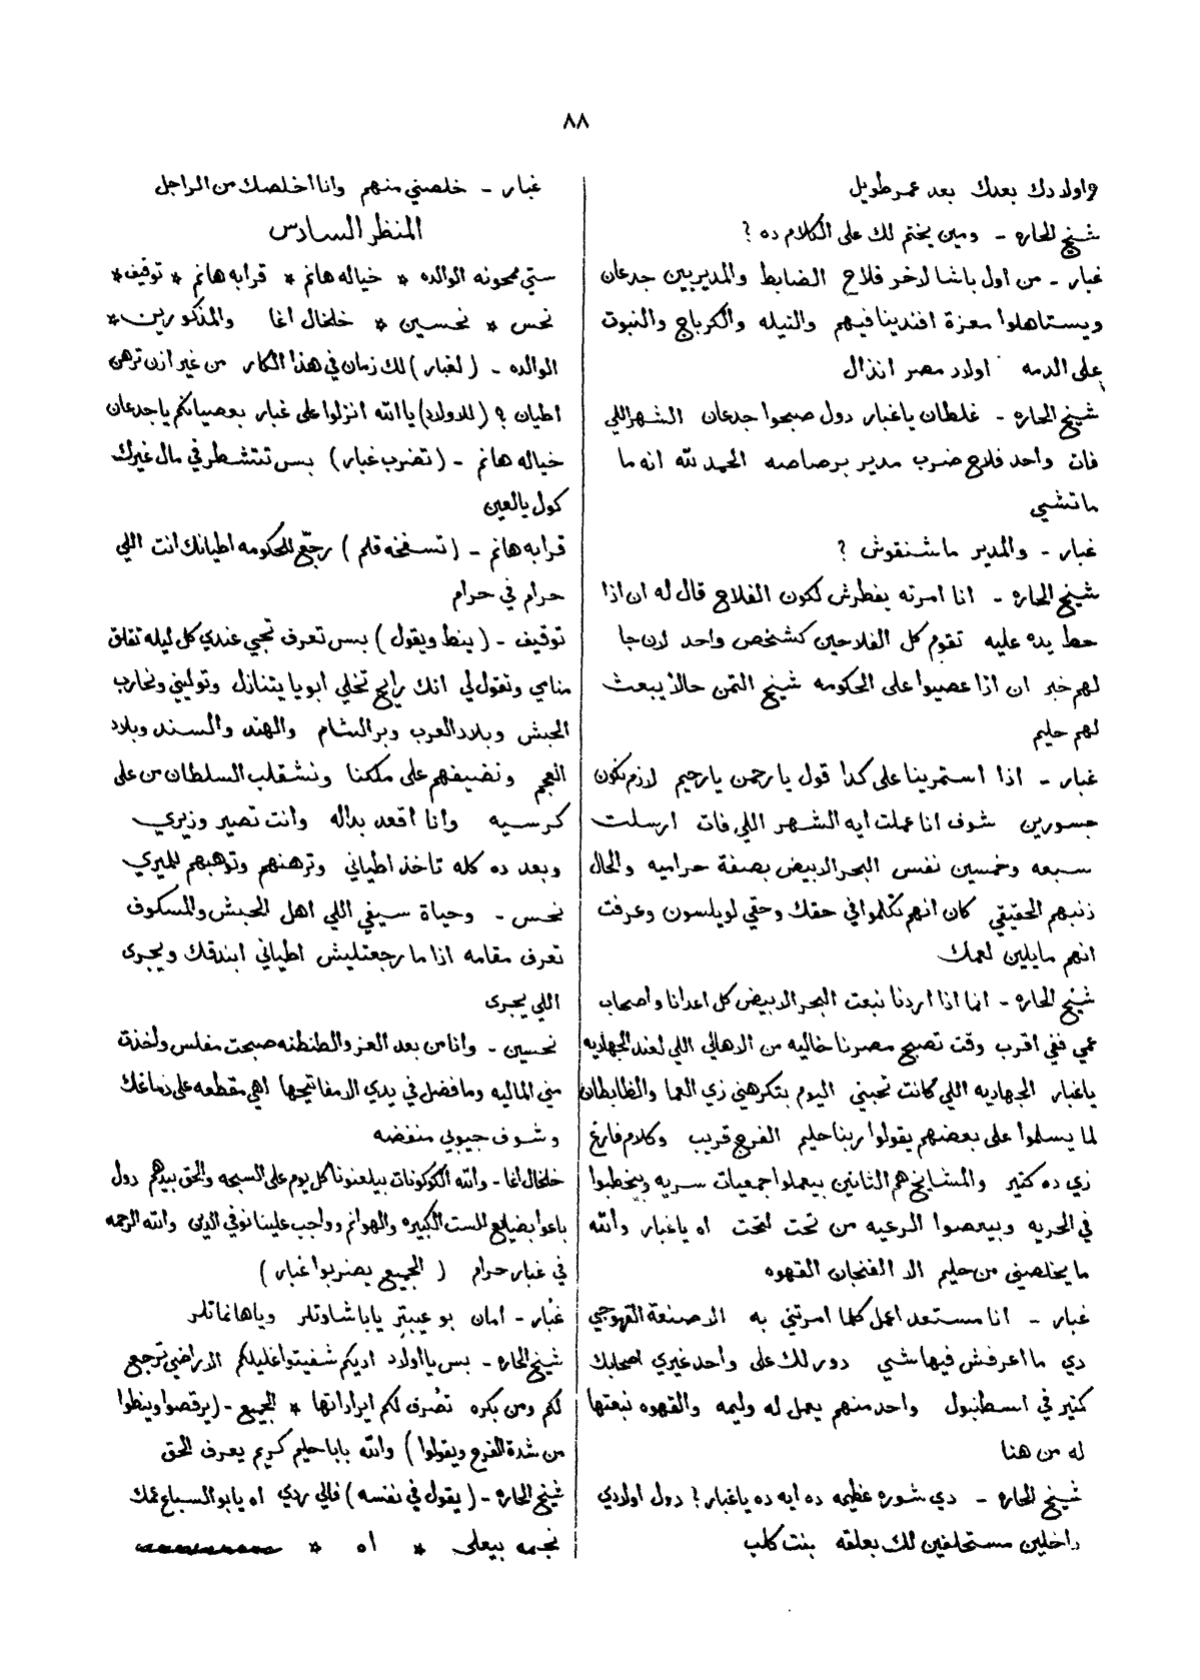 ٨٨
واولادك بعدك بعد عمر طويل
شيخ الحاره - ومين يختم لك على الكلام ده ؟
غبار - من اول باشا لاخر فلاح الضابط والمديربين جدعان
ويستاهلوا معزة افندينا فيهم والنيله والكرباج والنبوت
على الدمه اولاد مصر انذال
شيخ الحاره - غلطان ياغبار دول صبحوا جدعان الشهر اللي
فات واحد فلاح ضرب مدير برصاصه الحمد لله انه ما
ماتشي
غبار - والمدير ماشنقوش ؟
شيخ الحاره - انا امرته يفطرش لكون الفلاح قال له ان اذا
حط يده عليه تقوم كل الفلاحين كشخص واحد لان جا
لهم خبر ان اذا عصيوا على الحكومه شيخ التمن حالاً يبعث
لهم حليم
غبار - اذا استمرينا على كدا قول يا رحمن يا رحيم لازم نكون
جسورين شوف انا عملت ايه الشهر اللي فات ارسلت
سبعه وخمسين نفس البحر الابيض بصفة حراميه والحال
ذنبهم الحقيقي كان انهم تكلموا في حقك وحتي لويلسون وعرفت
انهم مايلين لعمك
شيخ الحاره - انما اذا اردنا نبعت البحر الابيض كل اعدانا واصحاب
عمي ففي اقرب وقت تصبح مصرنا خاليه من الاهالي اللي لعند الجهاديه
ياغبار الجهاديه اللي كانت تحبني اليوم بتكرهني زي العما والظابطان
لما يسلموا على بعضهم يقولوا ربنا حليم الفرج قريب وكلام فارغ
زي ده كتير والمشايخ هم التانين بيعملوا جمعيات سريه ويخطبوا
في الحريه وبيعصوا الرعيه من تحت لتحت اه ياغبار والله
ما يخلصني من حليم الا الفنجان القهوه
غبار - انا مستعد اعمل كلما امرتني به الا صنعة القهوجي
دي ما اعرفش فيها شي دور لك على واحد غيري اصحابك
كتير في اسطنبول واحد منهم يعمل له وليمه والقهوه نبعتها
له من هنا
شيخ الحاره - دي شوره عظيمه ده ايه ده ياغبار ؟ دول اولادي
داخلين مستحلفين لك بعلقه بنت كلب
غبار - خلصني منهم وانا اخلصك من الراجل
المنظر السادس
ستي محمونه الوالده * خياله هانم * قرابه هانم * توقيف *
نحس * نحسين * خلخال اغا والمذكورين *
الوالده - ( لغبار ) لك زمان في هذا الكار من غير ازن ترهن
اطيان ؟ ( للاولاد ) يا الله انزلوا على غبار بعصيانكم يا جدعان
خياله هانم - ( تضرب غبار ) بس تتشطر في مال غيرك
كول يا لعين
قرابه هانم - ( تسفخه قلم ) رجّع للحكومه اطيانك انت اللي
حرام في حرام
توقيف - ( ينط ويقول ) بس تعرف تجي عندي كل ليله تقلق
منامي وتقول لي انك رايح تخلي ابويا يتنازل وتوليني ونحارب
الحبش وبلاد العرب وبر الشام والهند والسند وبلاد
العجم ونضيفهم على ملكنا ونشقلب السلطان من على
كرسيه وانا اقعد بداله وانت تصير وزيري
وبعد ده كله تاخذ اطياني وترهنهم وتوهبهم للميري
نحس - وحياة سيفي اللي اهل الحبش والمسكوف
تعرف مقامه اذا ما رجعتليش اطياني ابندقك ويجرى
اللي يجرى
نحسين - وانا من بعد العز والطنطنه صبحت مفلس واخذت
مني الماليه وما فضل في يدي الا مفاتيحها اهي مقطعه على دماغك
وشوف جيوبي منفضه
خلخال اغا - والله الكوكونات بيلعنونا كل يوم على السبحه والحق بيدهم دول
باعوا بضايع للست الكبيره والهوانم وواجب علينا نوفي الدين والله الرحمه
في غبار حرام ( الجميع يضربوا غبار )
غبار - امان بو عيبتر يا باشاوتلر وياهانماتلر
شيخ الحاره - بس يا اولاد اديكم شفيتوا غليلكم الاراضي ترجع
لكم ومن بكره تصرف لكم ايراداتها * الجميع - ( يرقصوا وينطوا
من شدة الفرح ويقولوا ) والله بابا حليم كريم يعرف الحق
شيخ الحاره - ( يقول في نفسه ) فالي ردي اه يابو السباع عمك
نجمه بيعلى * اه *